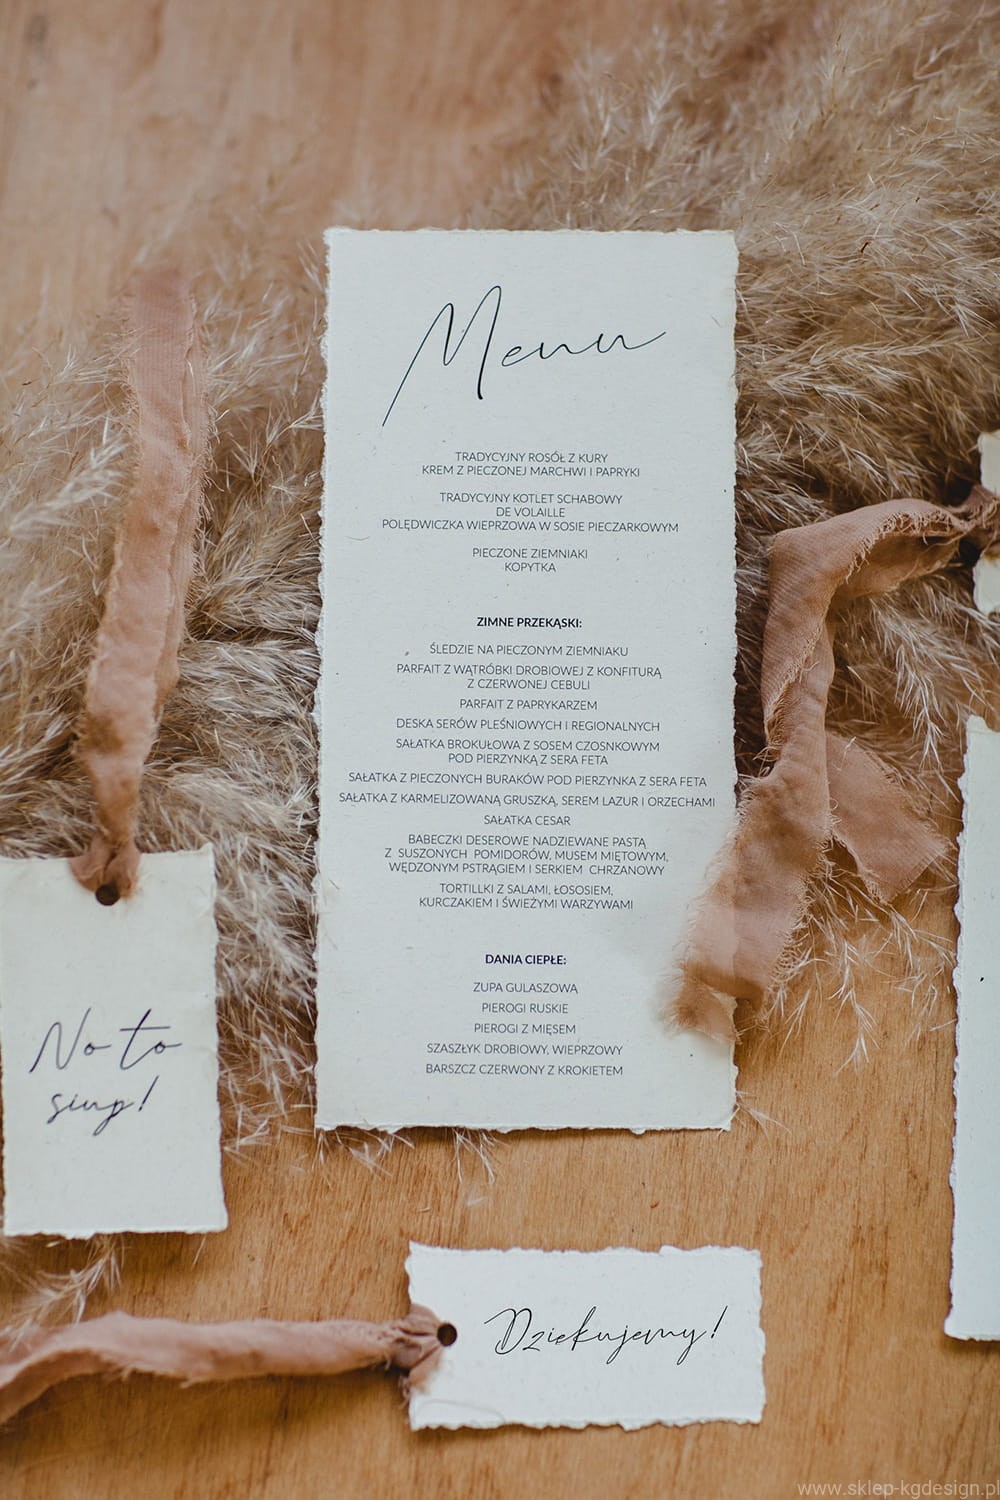 Menu
TRADYCYJNY ROSÓŁ Z KURY
KREM Z PIECZONEJ MARCHWI I PAPRYKI
TRADYCYJNY KOTLET SCHABOWY
DE VOLAILLE
POLĘDWICZKA WIEPRZOWA W SOSIE PIECZARKOWYM
PIECZONE ZIEMNIAKI
KOPYTKA
ZIMNE PRZEKĄSKI:
ŚLEDZIE NA PIECZONYM ZIEMNIAKU
PARFAIT Z WĄTRÓBKI DROBIOWEJ Z KONFITURĄ
Z CZERWONEJ CEBULI
PARFAIT Z PAPRYKARZEM
DESKA SERÓW PLEŚNIOWYCH I REGIONALNYCH
SAŁATKA BROKUŁOWA Z SOSEM CZOSNKOWYM
POD PIERZYNKĄ Z SERA FETA
SAŁATKA Z PIECZONYCH BURAKÓW POD PIERZYNKA Z SERA FETA
SAŁATKA Z KARMELIZOWANĄ GRUSZKĄ, SEREM LAZUR I ORZECHAMI
SAŁATKA CESAR
BABECZKI DESEROWE NADZIEWANE PASTĄ
Z SUSZONYCH POMIDORÓW, MUSEM MIĘTOWYM,
WĘDZONYM PSTRĄGIEM I SERKIEM CHRZANOWY
TORTILLKI Z SALAMI, ŁOSOSIEM,
KURCZAKIEM I ŚWIEŻYMI WARZYWAMI
DANIA CIEPŁE:
ZUPA GULASZOWĄ
PIEROGI RUSKIE
PIEROGI Z MIĘSEM
SZASZŁYK DROBIOWY, WIEPRZOWY
BARSZCZ CZERWONY Z KROKIETEM
No to
siup!
Dziękujemy!
www.sklep-kgdesign.pl